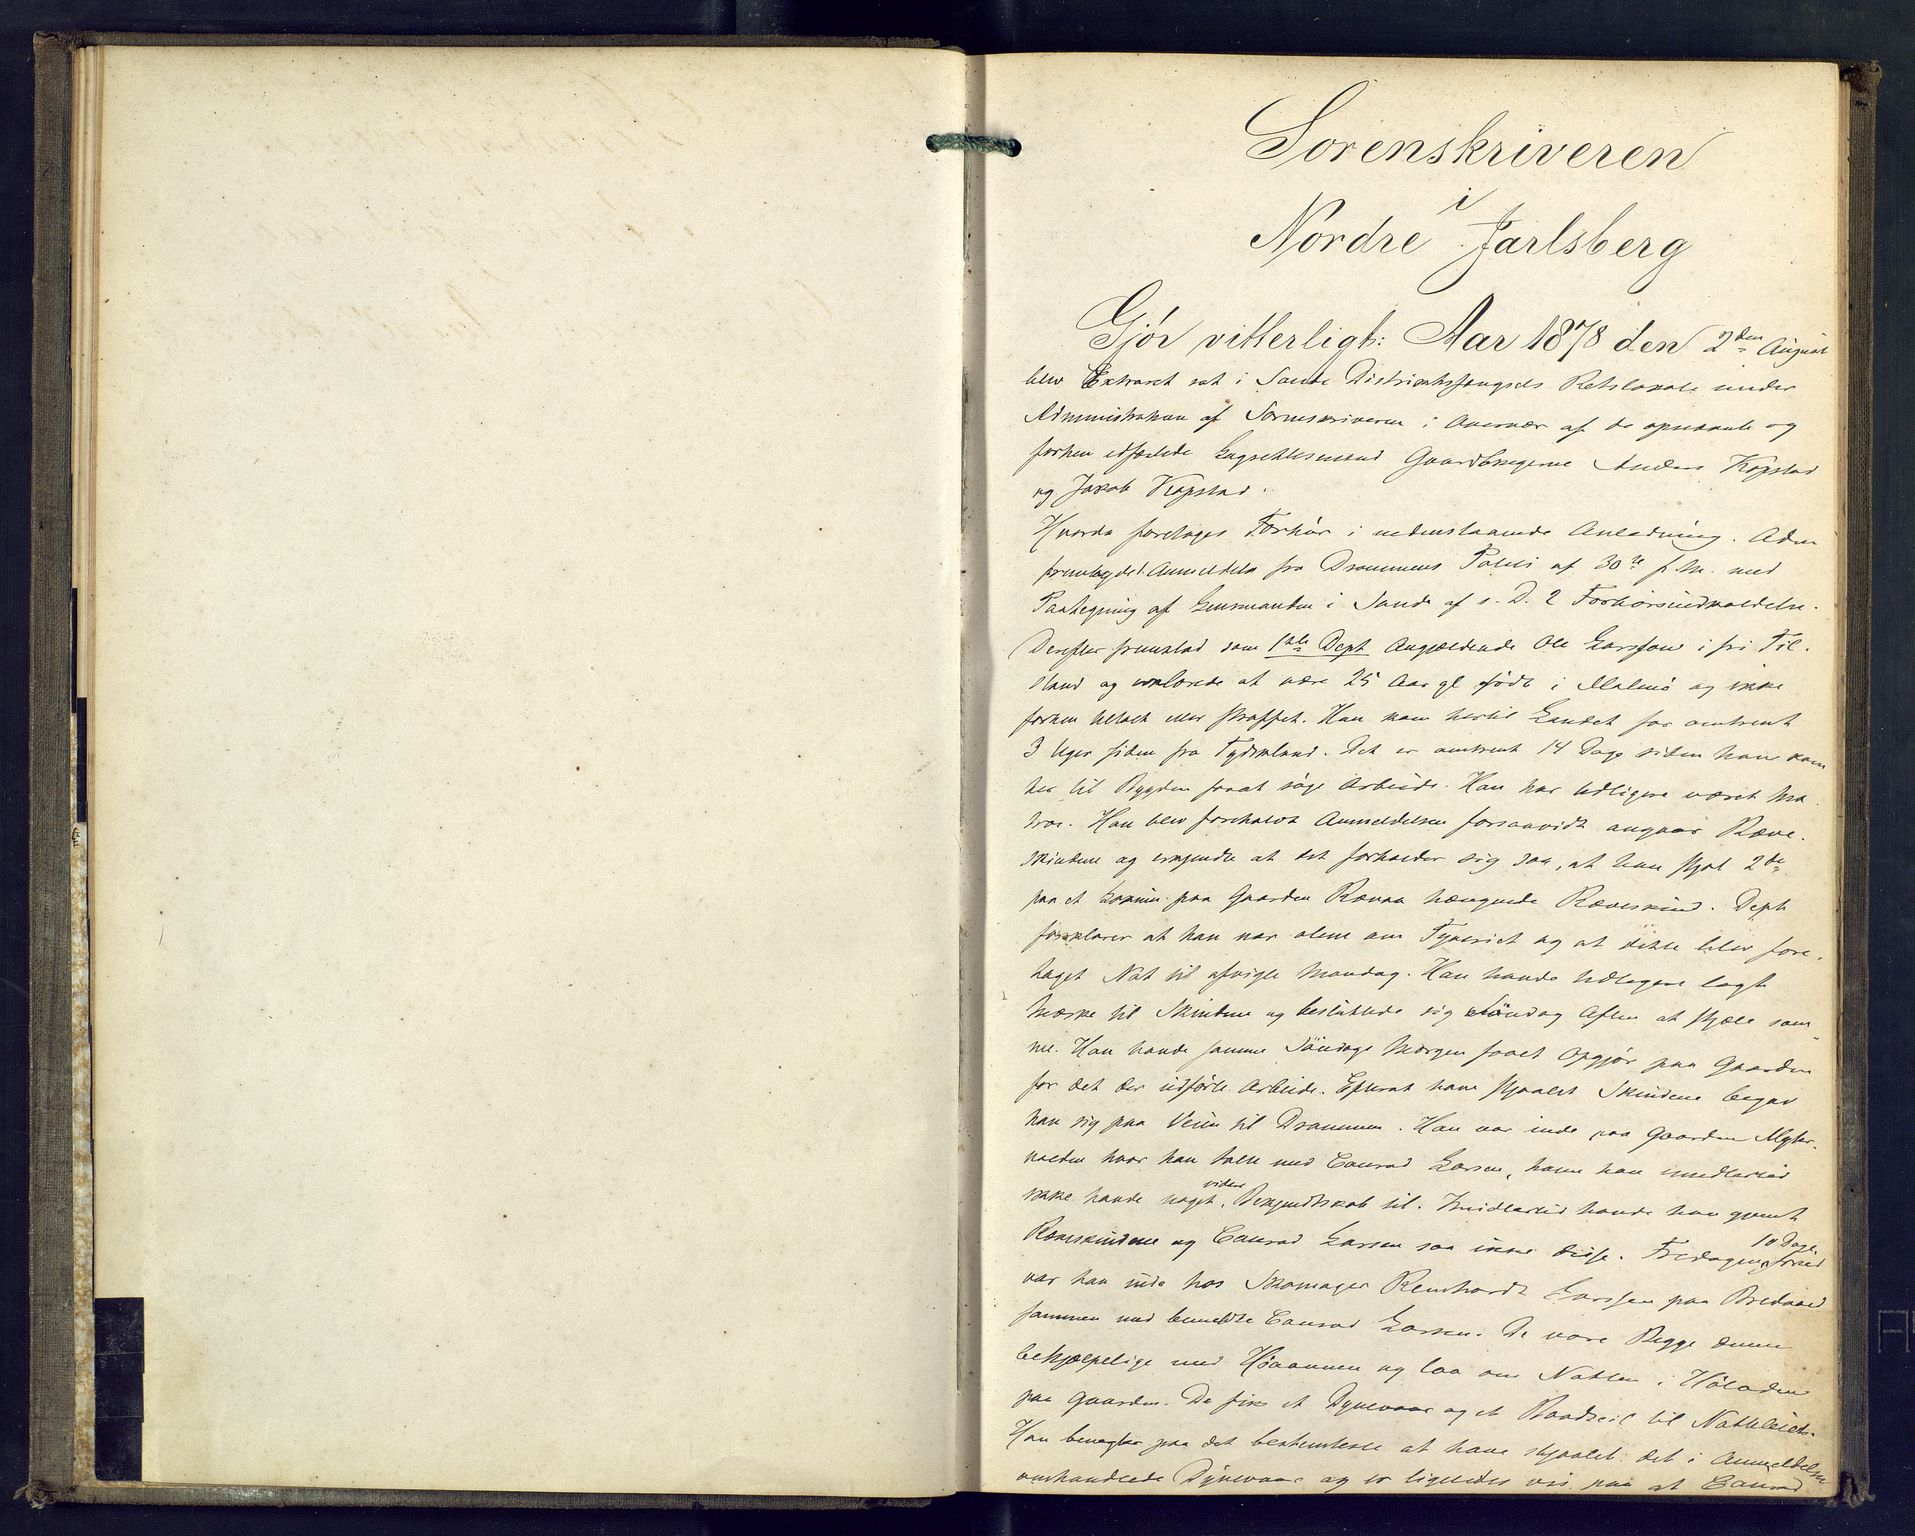 Sorenskriveren
i
Nordre Jarlsberg
Gjör vitterligt: Aar 1878 den 2den August
blev Extraret sat i Sande Distriktsfængsels Retslokale under
Administration af Sorenskriveren i Overvær af de opnævnte og
forhen edfæstede Lagrettesmænd Gaardbrugerne Anders Kopstad
og Jakob Kopstad.
Hvorda foretages Forhör i nedenstaaende Anledning. Adm
fremlagde Anmeldelse fra Drammens Politi af 30te f. M. med
Paategning af Lensmanden i Sande af s. D. 2 Forhörsindkaldelse.
Derefter fremstod som 1ste Dept Angjældende Ole Larsson i fri Til-
stand og erklærede at være 25 Aar gl. födt i Malmö og ikke
forhen tiltalt eller straffet. Han kom hertil Landet for omtrent
3 Uger siden fra Tydskland. Det er omtrent 14 Dage siden han kom
her til Bygden foraat söge Arbeide. Han har tidligere været Ma-
tros. Han blev foreholdt Anmeldelsen forsaavidt angaar Ræve-
skindene og erkjendte at det forholder sig saa, at han stjal 2de
paa et paa Gaarden Ravaa hængende Ræveskind. Dept
forklarer at han var alene om Tyveriet og at dette blev fore-
taget Nat til afvigte Mandag. Han havde tidligere lagt
Mærke til Skindene og besluttede sig Söndag Aften at stjæle sam-
me. Han havde samme Söndags Morgen faaet Opgjör paa Gaarden
for det der udförte Arbeide. Efterat have stjaalet Skindene begav
han sig paa Veien til Drammen. Han var inde paa Gaarden
hvor han talte med Conrad Larsen, hvem han imidlertid
ikke havde noget videre Bekjendtskab til. Imidlertid havde han gjemt
Ræveskindene og Conrad Larsen saa ikke disse. Fredagen 10 Dage forud
var han inde hos Skomager Reinhardt Larssen paa
sammen med bemeldte Conrad Larsen. De vare Begge denne
behjælpelige med Höaannen og laa om Natten i Höladen
paa Gaarden. De fik et Dynevaar og et Baadseil til Natteleie.
Han benegter paa det bestemteste at have stjaalet det i Anmeldelsen
omhandlede Dynevaar og er ligeledes vis paa at Conrad